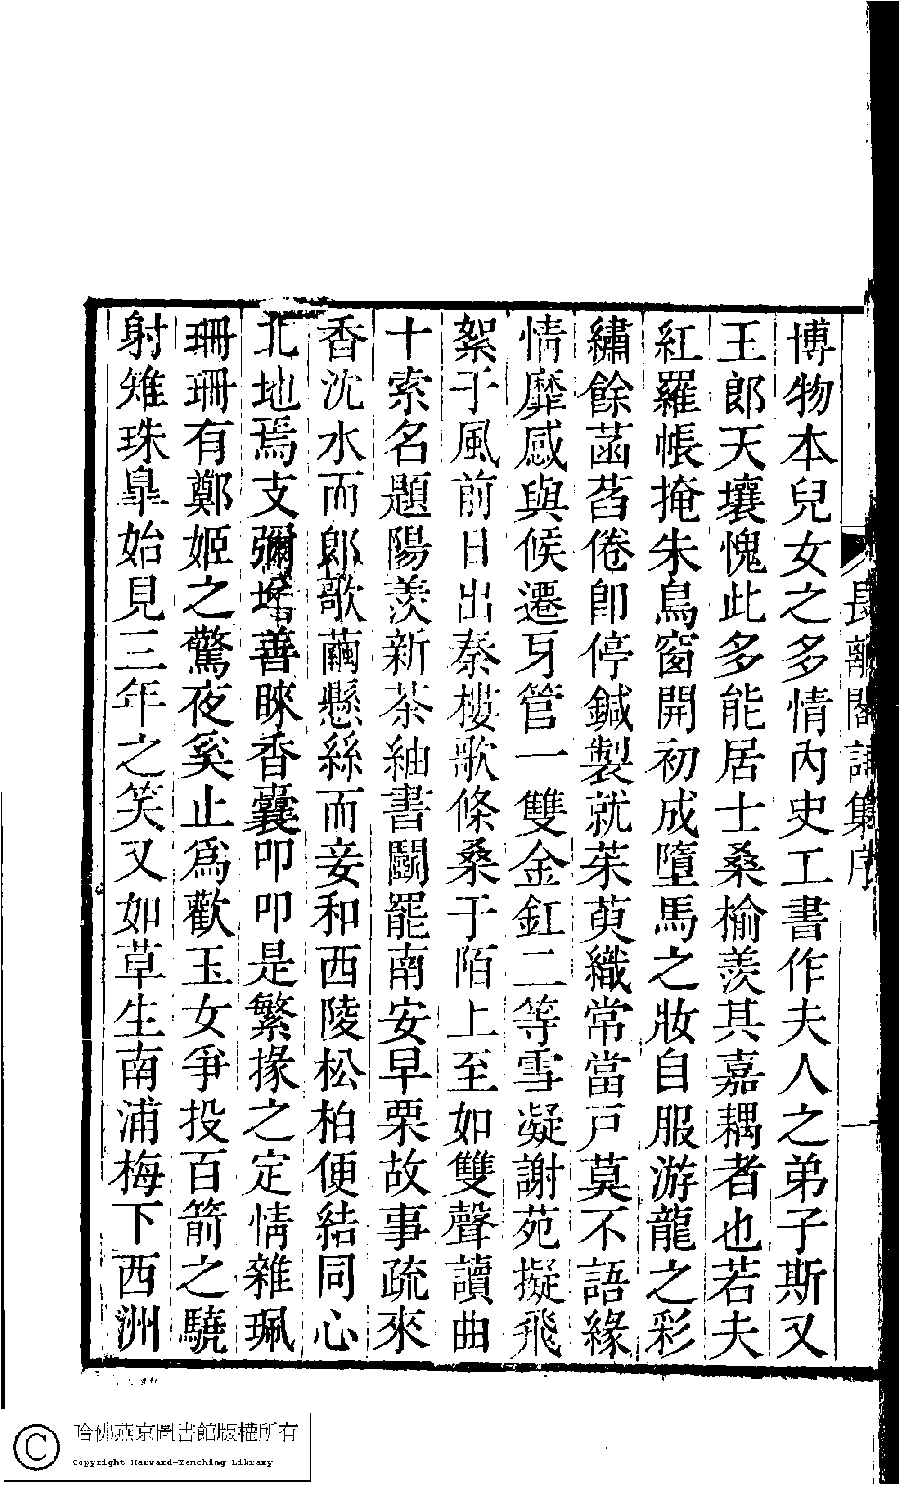 博物本兒女之多情內史工書作夫人之弟子斯又
王郎天壤愧此多能居士桑榆羨其嘉耦者也若夫
紅羅帳掩朱鳥窗開初成墮馬之妝自服游龍之彩
繡餘菡萏倦卽停鍼製就茱萸織常當戶莫不語緣
情靡感與候遷牙管一雙金釭二等雪凝謝苑擬飛
絮于風前日出秦樓歌條桑于陌上至如雙聲讀曲
十索名題陽羨新茶紬書鬬罷南安早栗故事疏來
香沈水而郎歌繭懸絲而妾和西陵松柏便結同心
北地焉支彌增善睞香囊叩叩是繁掾之定情雜珮
珊珊有鄭姬之驚夜奚止爲歡玉女爭投百箭之驍
射雉珠皐始見三年之笑又如草生南浦梅下西洲
長離閣詩集序
一
哈佛燕京圖書館版權所有
Copyright Harvard-Yenching Library